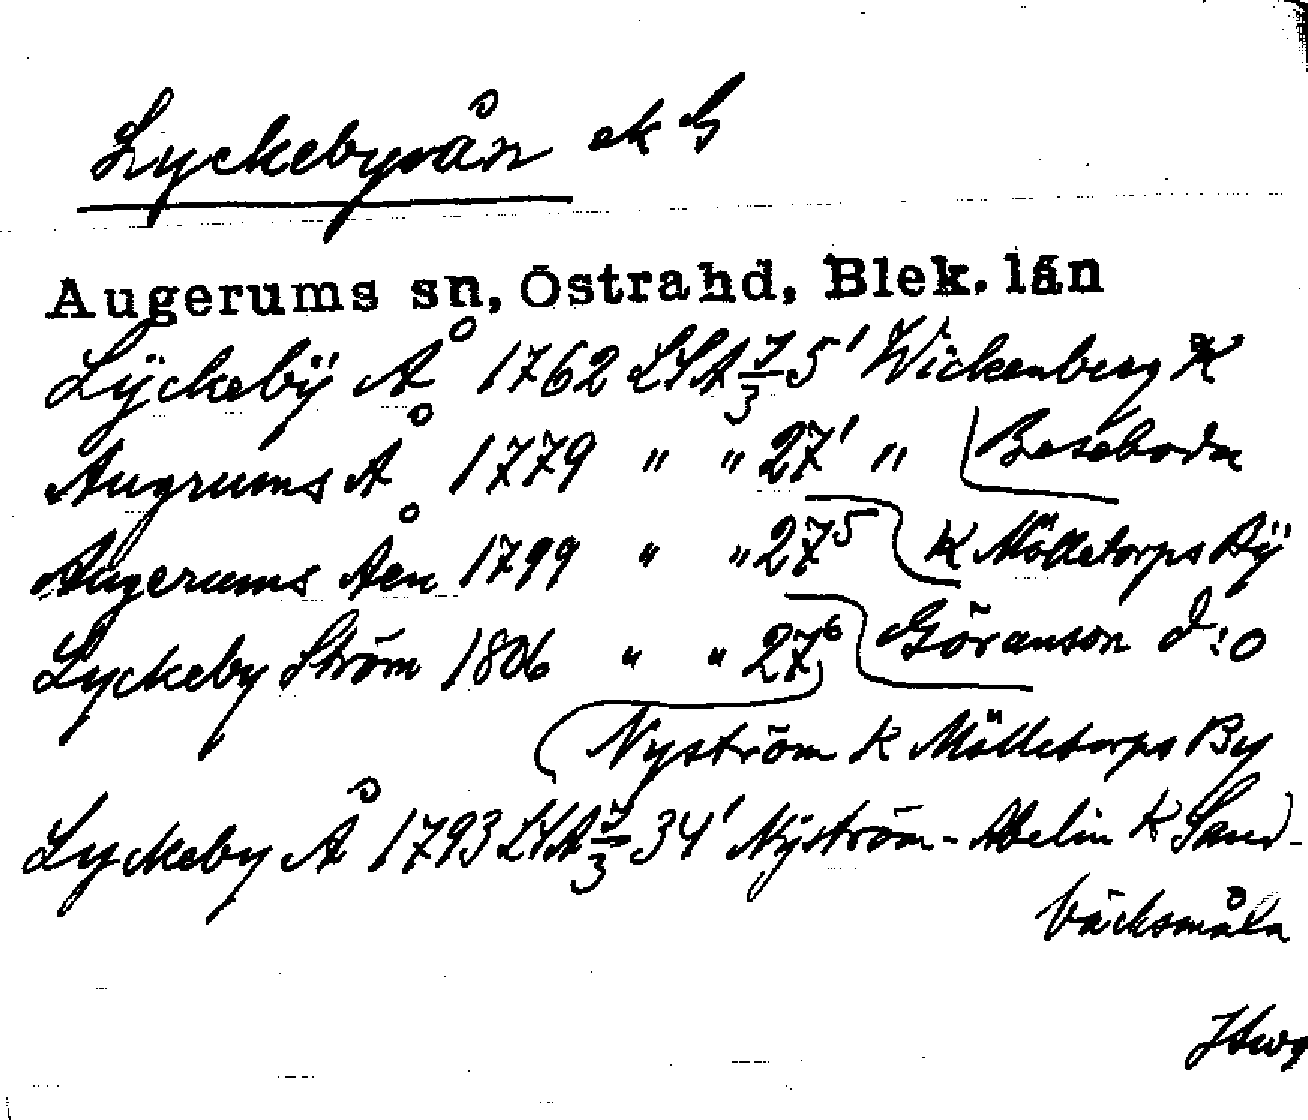 Lyckebyån ek G
Augerums sn, Östra hd, Blek. län
Lÿckebÿ Å 1762 LSA 7/3 5' Wickenberg K
Augrums Å 1779 " " 27' " Beseboda
Augerums Åen 1799 " " 27⁵ K Mölletorps Bÿ
Lyckeby Ström 1806 " " 27⁶ Göranson d:o
Nyström K Mölletorps By
Lyckeby Å 1793 LSA 7/3 34' Nÿström - Abelin K Sand-
bäcksmåla